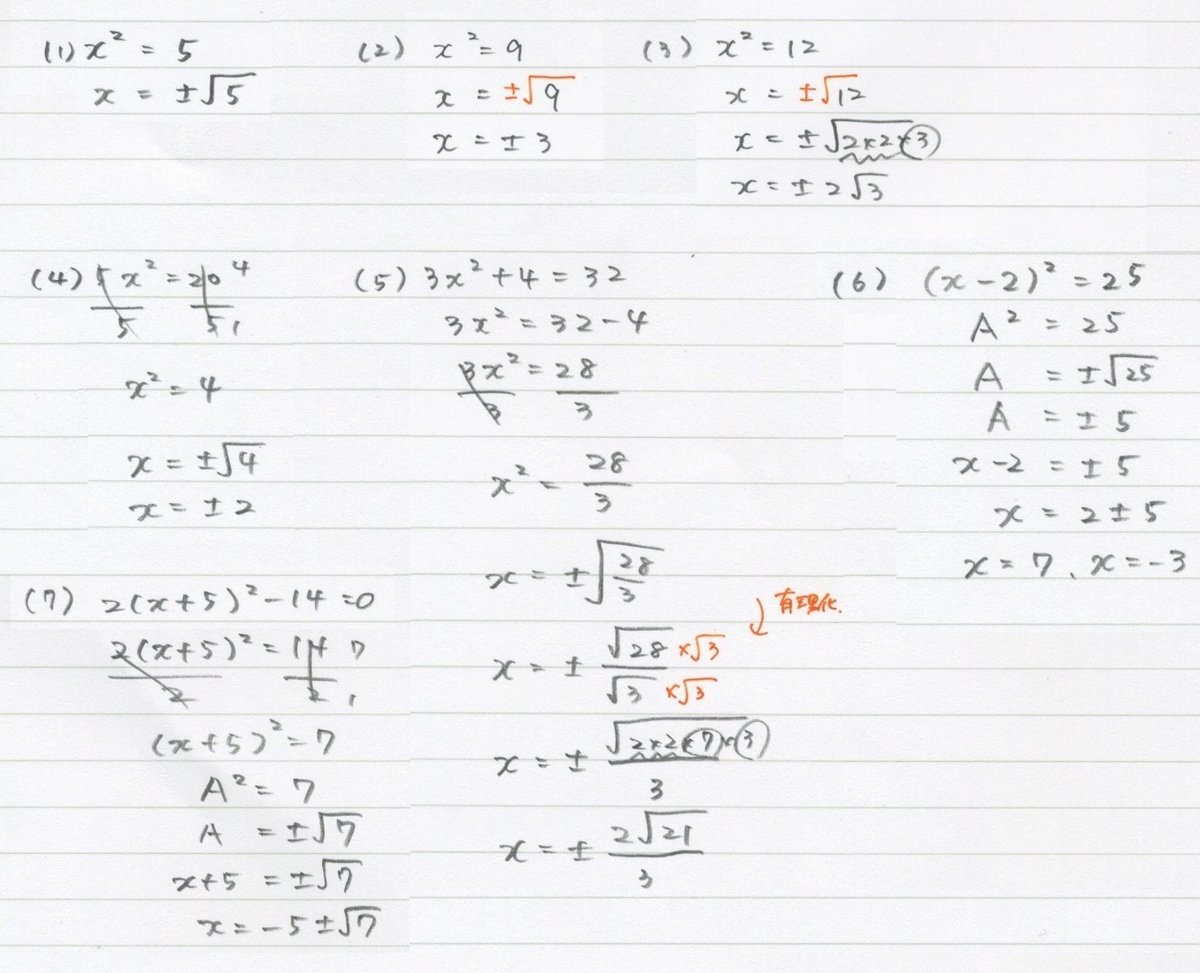 (1) x² = 5
x = ±√5
(2) x² = 9
x = ±√9
x = ±3
(3) x² = 12
x = ±√12
x = ±√(2×2×3)
x = ±2√3
(4) 5x²/5 = 20/5 4 1
x² = 4
x = ±√4
x = ±2
(5) 3x² + 4 = 32
3x² = 32 - 4
3x²/3 = 28/3
x² = 28/3
x = ±√(28/3)
有理化.
x = ± (√28 ×√3)/(√3 ×√3)
x = ± √(2×2×7×3)/3
x = ± 2√21/3
(6) (x-2)² = 25
A² = 25
A = ±√25
A = ±5
x-2 = ±5
x = 2±5
x = 7、x = -3
(7) 2(x+5)² - 14 = 0
2(x+5)²/2 = 14/2 7 1
(x+5)² = 7
A² = 7
A = ±√7
x+5 = ±√7
x = -5±√7